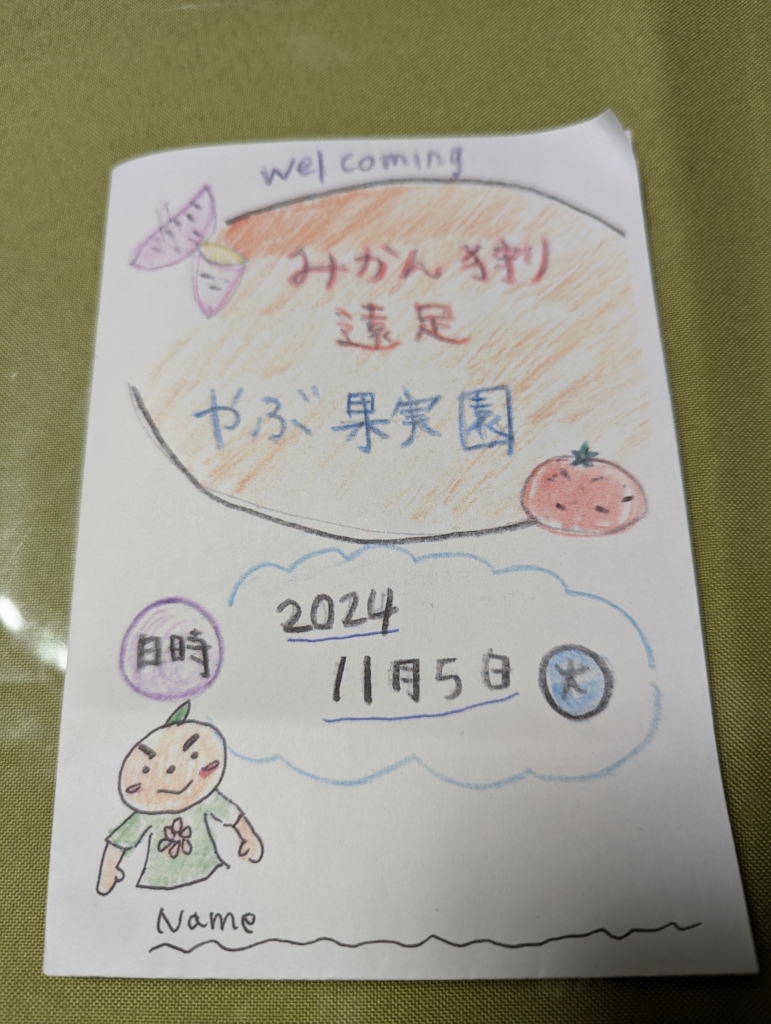 welcoming
みかん狩り
遠足
やぶ果実園
日時
2024
11月5日 火
Name